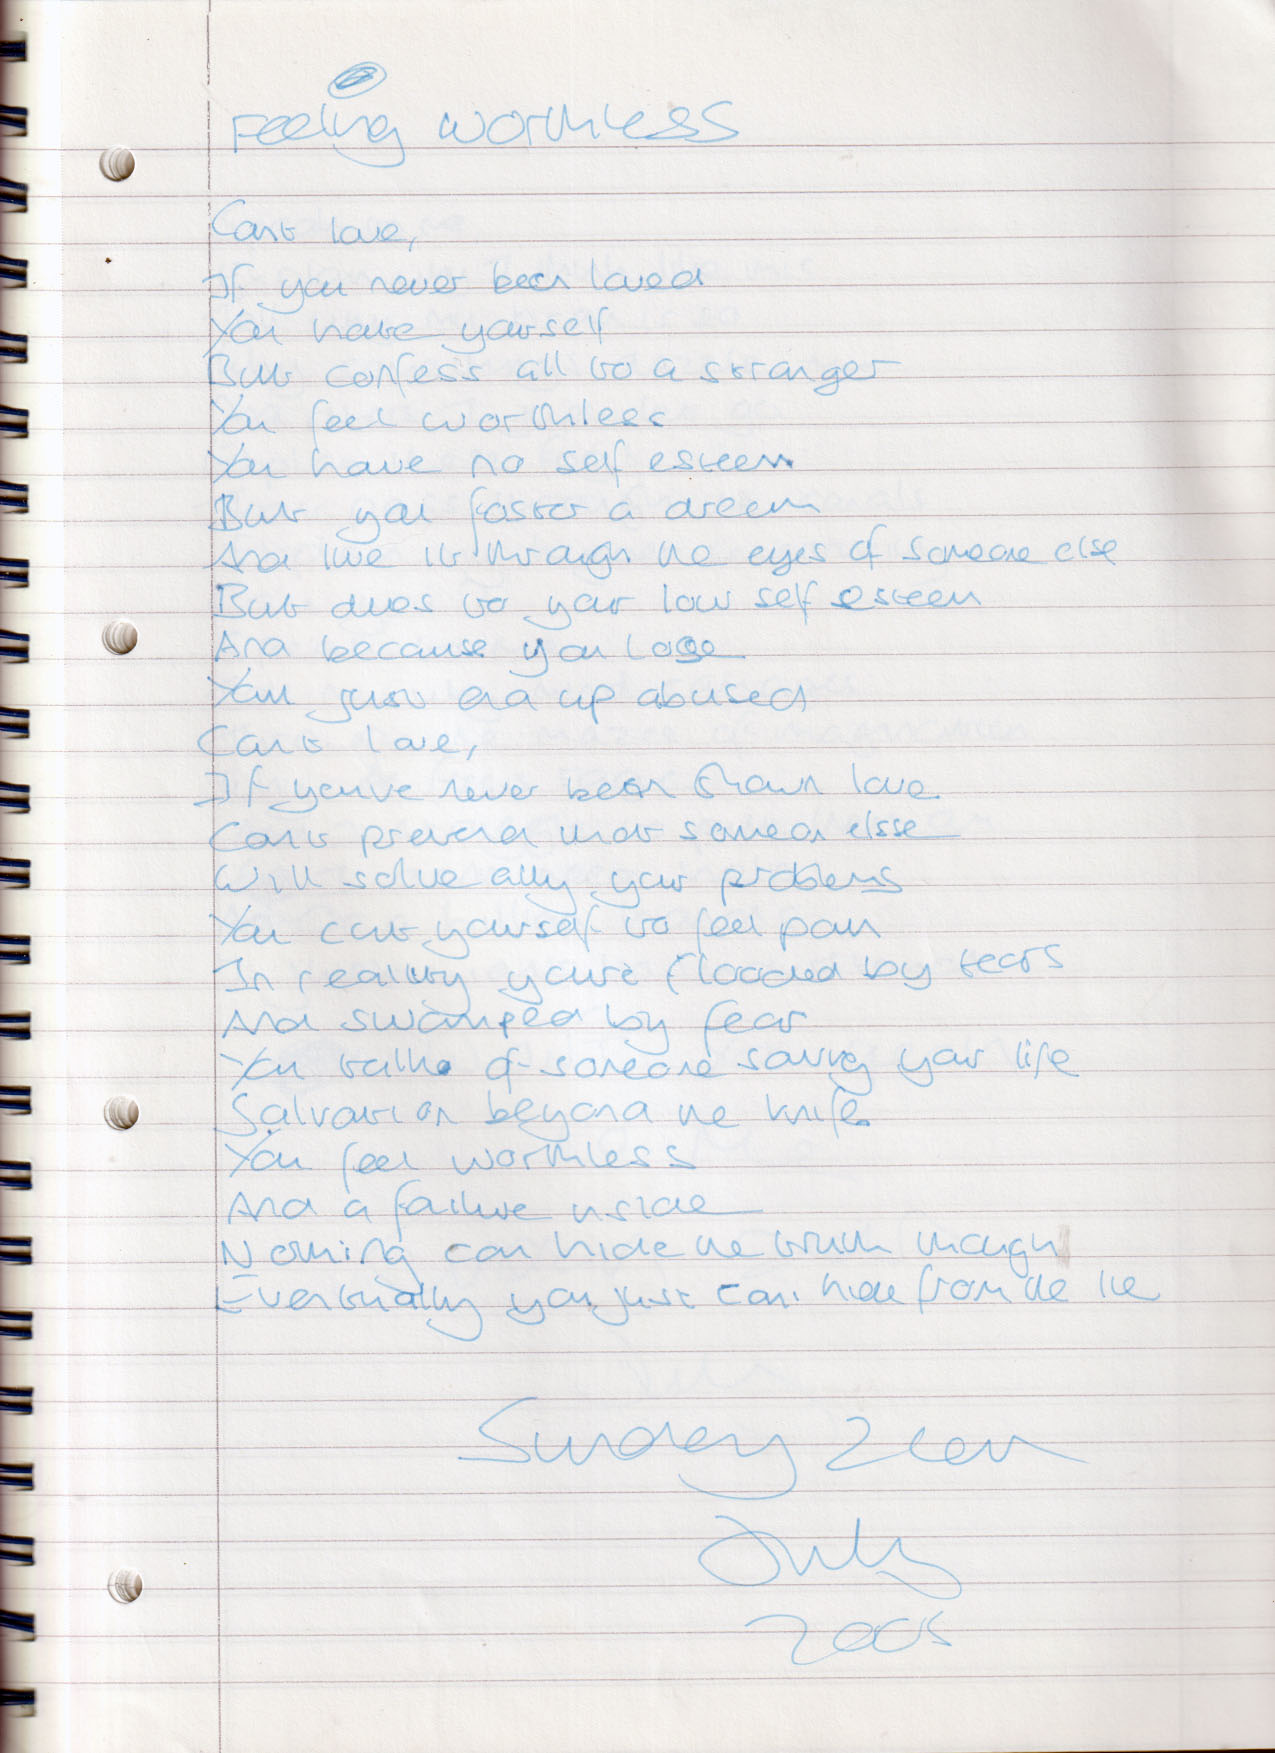 Feeling worthless
Can't love,
If you never been loved
You hate yourself
But confess all to a stranger
You feel worthless
You have no self esteem
But you foster a dream
And live it through the eyes of someone else
But dues to your low self esteem
And because you lose
You just end up abused
Can't love,
If you've never been shown love
Can't pretend that someon elsse
Will solve ally your problems
You cut yourself to feel pain
In reality you're flooded by tears
And swamped by fear
You talk of someone saving your life
Salvation beyond the knife
You feel worthless
And a failure inside
Nothing can hide the truth though
Eventually you just can't hide from the lie
Sunday
July
2005